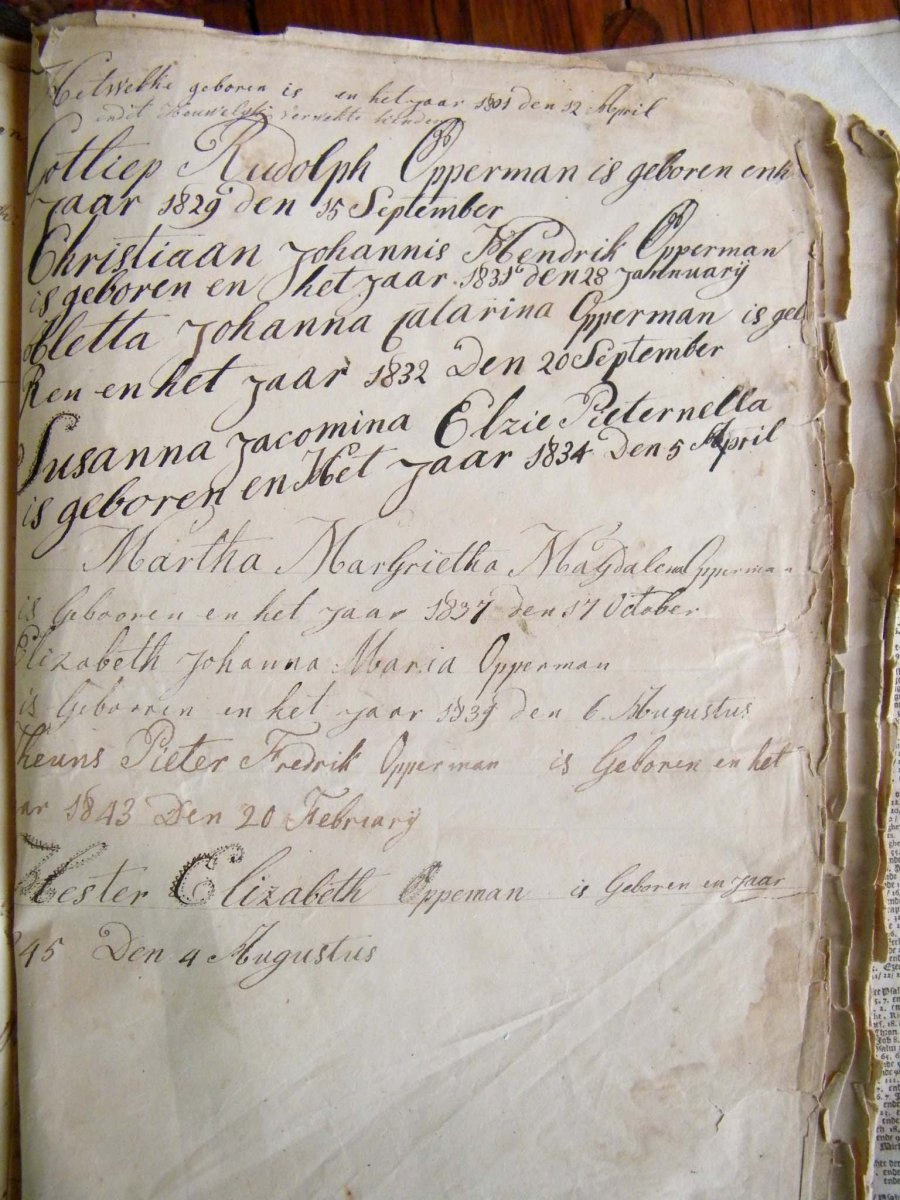 Hetwelke geboren is en het jaar 1801 den 12 April
endit Houwelyk verwekte kinderen
Gottliep Rudolph Opperman is geboren en h
Jaar 1829 den 15 September
Christiaan Johannis Hendrik Opperman
is geboren en het Jaar 1831 den 28 Jannuarij
Aletta Johanna Catarina Opperman is geb
Ren en het Jaar 1832 Den 20 September
Susanna Jacomina Elzie Pieternella
is geboren en Het Jaar 1834 Den 5 April
Martha Margrietha Magdalena Opperman
is Gebooren en het Jaar 1837 den 17 October
Elizabeth Johanna Maria Opperman
is Geborren en het Jaar 1839 den 6 Augustus
Theuns Pieter Fredrik Opperman is Geboren en het
ar 1843 Den 20 Februarij
Hester Elizabeth Oppeman is Geboren en Jaar
45 Den 4 Augustus